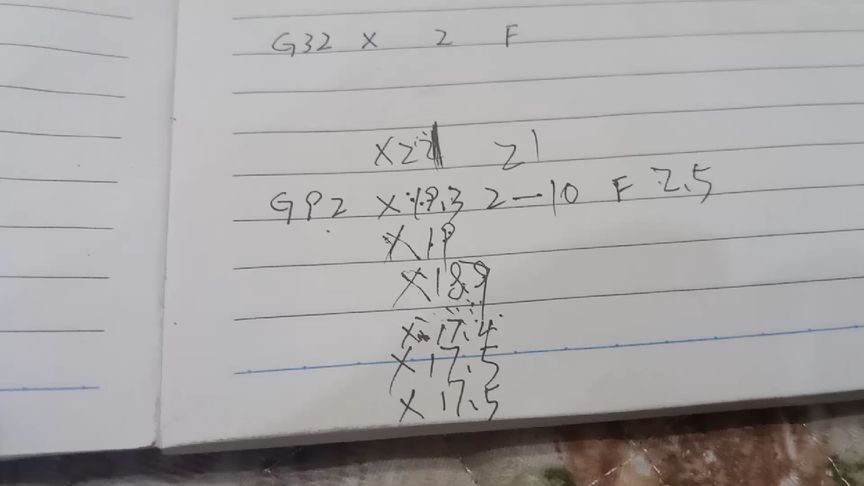 G32 X Z F
X22 Z1
G92 X19.3 Z-10 F 2.5
X19
X18.9
X 17.4
X 17.5
X 17.5